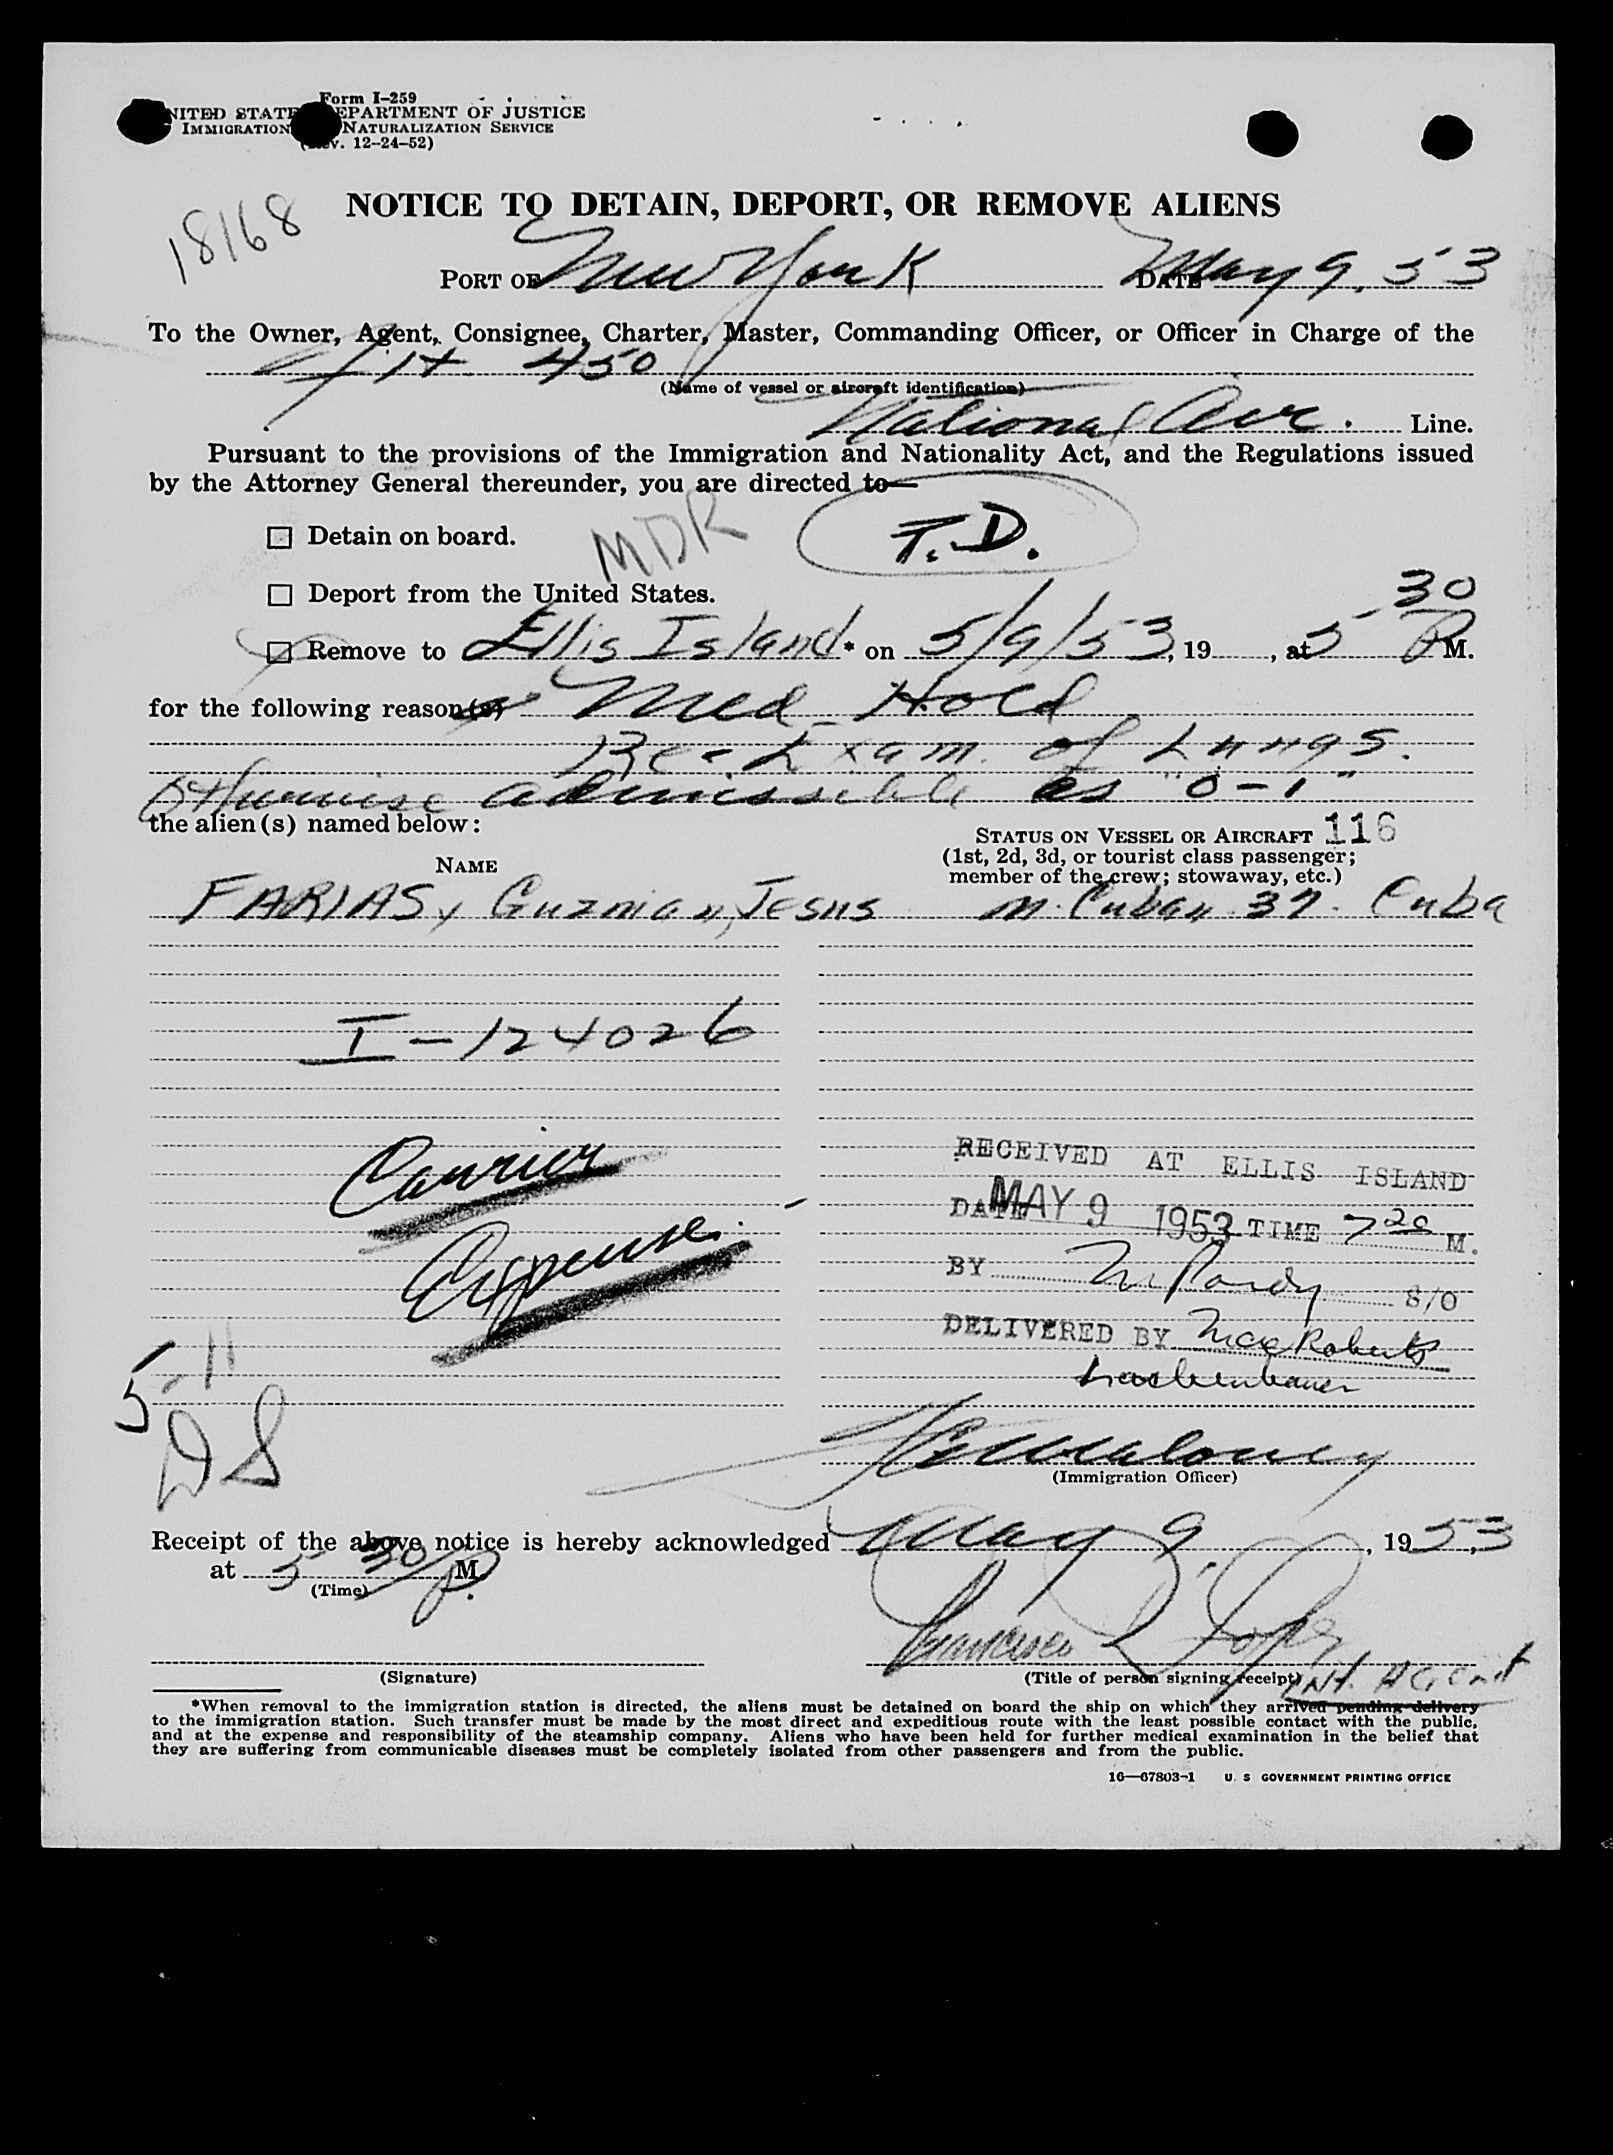 Form I-259
UNITED STATES DEPARTMENT OF JUSTICE
IMMIGRATION NATURALIZATION SERVICE
(Rev. 12-24-52)
18168
NOTICE TO DETAIN, DEPORT, OR REMOVE ALIENS
PORT OF New York DATE May 9, 53
To the Owner, Agent, Consignee, Charter, Master, Commanding Officer, or Officer in Charge of the
Flt. 450
(Name of vessel or aircraft identification)
National Air. Line.
Pursuant to the provisions of the Immigration and Nationality Act, and the Regulations issued
by the Attorney General thereunder, you are directed to—
☐ Detain on board. MDR T.D.
☐ Deport from the United States.
☐ Remove to Ellis Island* on 5/9/53, 19 , at 5 30 P M.
for the following reason(s) Med. Hold
Re-Exam. of Lungs.
Otherwise admissible as "O-1"
the alien(s) named below:
STATUS ON VESSEL OR AIRCRAFT 116
(1st, 2d, 3d, or tourist class passenger;
NAME member of the crew; stowaway, etc.)
FARIAS, Guzman, Jesus m. Cuban 37. Cuba
I-124026
Carrier
Expense.
RECEIVED AT ELLIS ISLAND
DATE MAY 9 1953 TIME 7 20 M.
BY S/O
DELIVERED BY MacRoberts
5-11
DS
(Immigration Officer)
Receipt of the above notice is hereby acknowledged May 9, 1953,
at 5 30 P M.
(Time)
(Signature) (Title of person signing receipt) Int. Agent
*When removal to the immigration station is directed, the aliens must be detained on board the ship on which they arrived pending delivery
to the immigration station. Such transfer must be made by the most direct and expeditious route with the least possible contact with the public,
and at the expense and responsibility of the steamship company. Aliens who have been held for further medical examination in the belief that
they are suffering from communicable diseases must be completely isolated from other passengers and from the public.
16—67803-1 U. S. GOVERNMENT PRINTING OFFICE